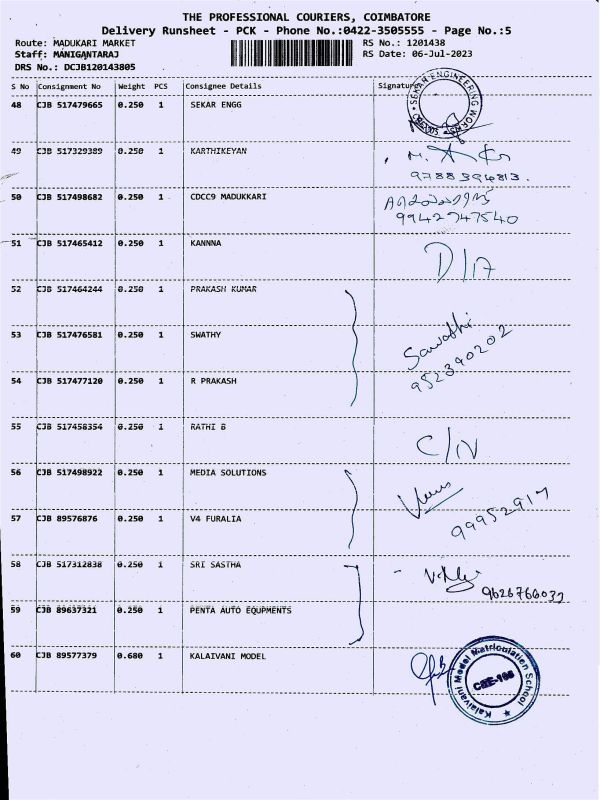 THE PROFESSIONAL COURIERS, COIMBATORE
Delivery Runsheet - PCK - Phone No.:0422-3505555 - Page No.:5
Route: MADUKARI MARKET RS No.: 1201438
Staff: MANIGANTARAJ RS Date: 06-Jul-2023
DRS No.: DCJB120143805
S No Consignment No Weight PCS Consignee Details Signature
48 CJB 517479665 0.250 1 SEKAR ENGG
SEKAR ENGINEERING WORKS
49 CJB 517329389 0.250 1 KARTHIKEYAN
9788394813.
50 CJB 517498682 0.250 1 CDCC9 MADUKKARI
9942747540
51 CJB 517465412 0.250 1 KANNNA D/A
52 CJB 517464244 0.250 1 PRAKASH KUMAR
53 CJB 517476581 0.250 1 SWATHY
952390202
54 CJB 517477120 0.250 1 R PRAKASH
55 CJB 517458354 0.250 1 RATHI B C/N
56 CJB 517498922 0.250 1 MEDIA SOLUTIONS
57 CJB 89576876 0.250 1 V4 FURALIA 99952917
58 CJB 517312838 0.250 1 SRI SASTHA
9626766037
59 CJB 89637321 0.250 1 PENTA AUTO EQUPMENTS
60 CJB 89577379 0.680 1 KALAIVANI MODEL
Kalaivani Model Matriculation School
CBE-105